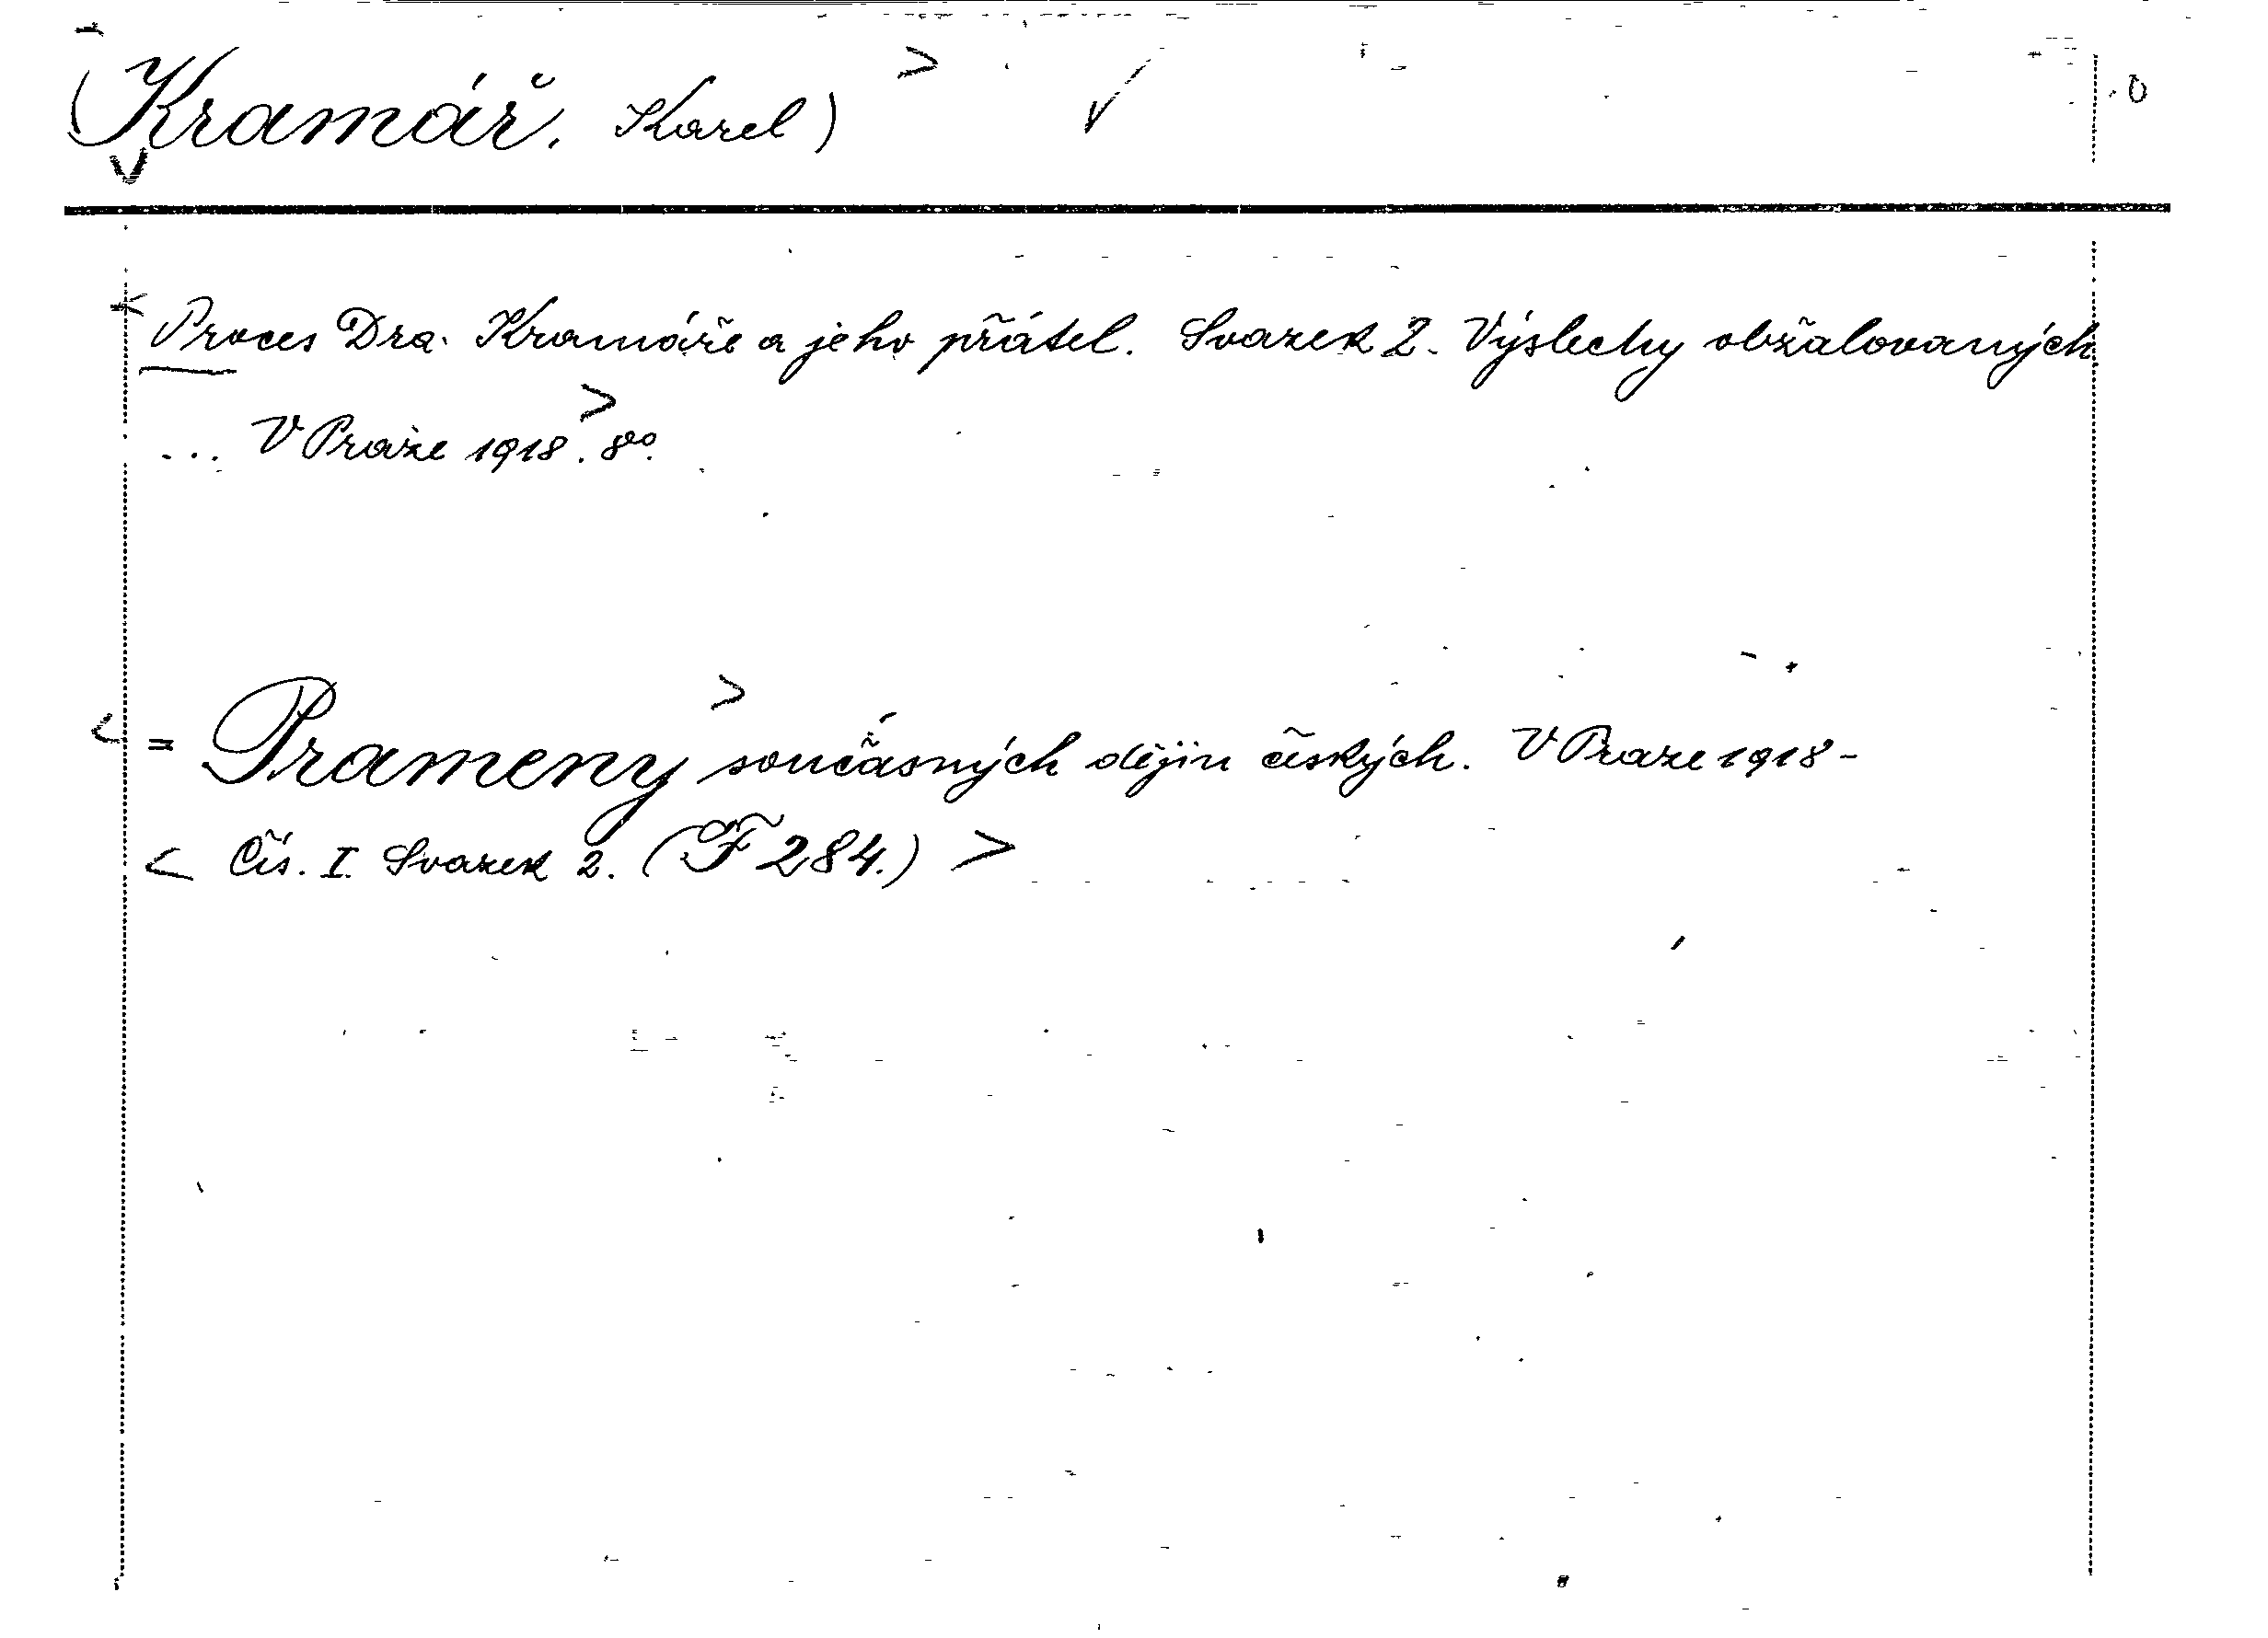 (Kramář. Karel)
Proces Dra. Kramáře a jeho přátel. Svazek 2. Výslechy obžalovaných
... V Praze 1918. 8º.
= Prameny současných dějin českých. V Praze 1918 -
Čís. I. Svazek 2. (F 284.)